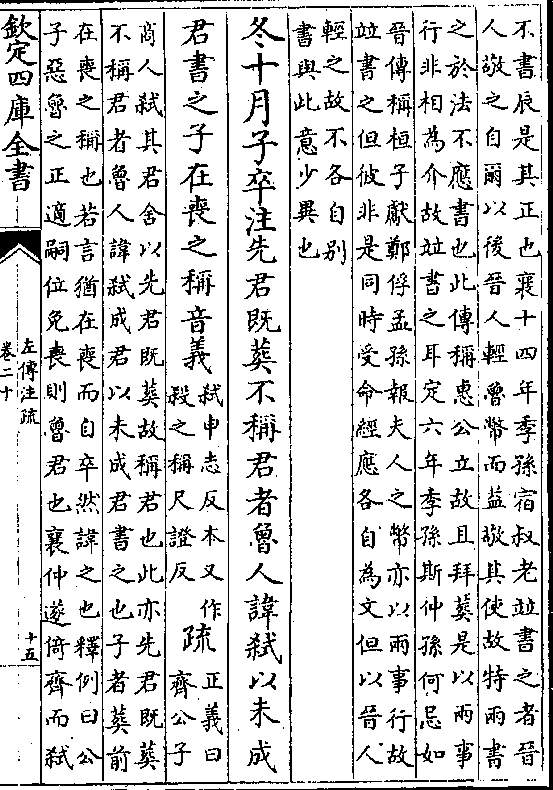 不書辰是其正也襄十四年季孫宿叔老竝書之者晉
人敬之自爾以後晉人輕魯幣而益敬其使故特兩書
之於法不應書也此傳稱惠公立故且拜葬是以兩事
行非相為介故竝書之耳定六年季孫斯仲孫何忌如
晉傳稱桓子獻鄭俘孟孫報夫人之幣亦以兩事行故
竝書之但彼非是同時受命經應各自為文但以晉人
輕之故不各自別
書與此意少異也
冬十月子卒注先君既葬不稱君者魯人諱弑以未成
君書之子在喪之稱音義
弑申志反本又作
殺之稱尺證反
疏
正義曰
齊公子
商人弑其君舍以先君既葬故稱君也此亦先君既葬
不稱君者魯人諱弑成君以未成君書之也子者葬前
在喪之稱也若言猶在喪而自卒然諱之也釋例曰公
子惡魯之正適嗣位免喪則魯君也襄仲遂倚齊而弑
欽定四庫全書
左傳注疏
卷二十
十五